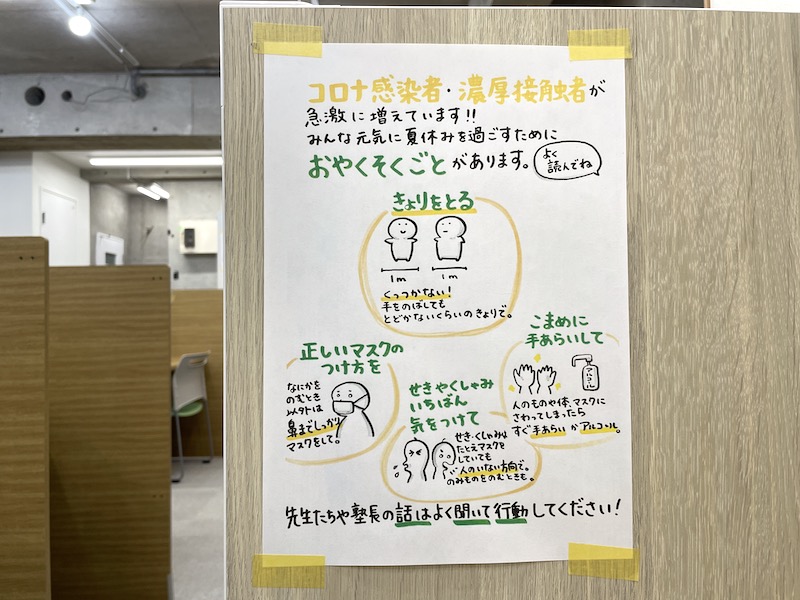 コロナ感染者・濃厚接触者が
急激に増えています!!
みんな元気に夏休みを過ごすために
おやくそくごとがあります。
よく
読んでね
きょりをとる
1m
1m
くっつかない!
手をのばしても
とどかないくらいのきょりで。
正しいマスクの
つけ方を
なにかを
のむとき
以外は
鼻までしっかり
マスクをして。
せきやくしゃみ
いちばん
気をつけて
せき・くしゃみは
たとえマスクを
していても
人のいない方向で。
のみものをのむときも。
こまめに
手あらいして
アルコール
人のものや体、マスクに
さわってしまったら
すぐ手あらいかアルコール。
先生たちや塾長の話はよく聞いて行動してください!